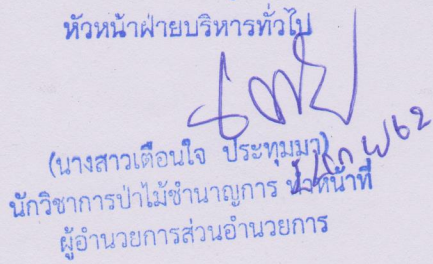 หัวหน้าฝ่ายบริหารทั่วไป
(นางสาวเตือนใจ ประทุมมา)
นักวิชาการป่าไม้ชำนาญการ ทำหน้าที่
ผู้อำนวยการส่วนอำนวยการ